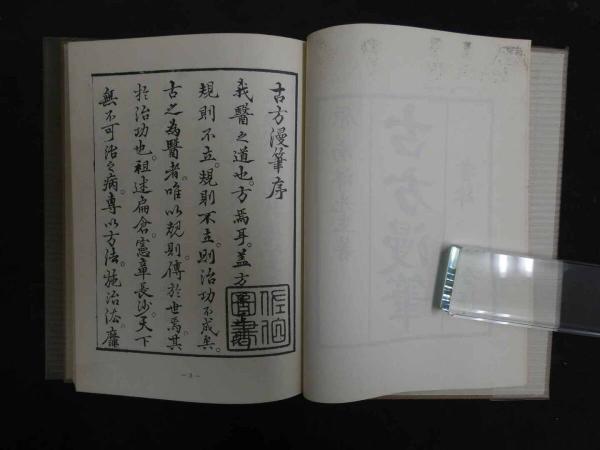 古方漫筆序
我醫之道也。方焉耳。蓋方
規則不立。規則不立。則治功不成矣。
古之為醫者。唯以規則傳於世焉。其
於治功也。祖述扁倉。憲章長沙。天下
無不可治之病。專以方法。施治法。靡
古方漫筆
— 3 —